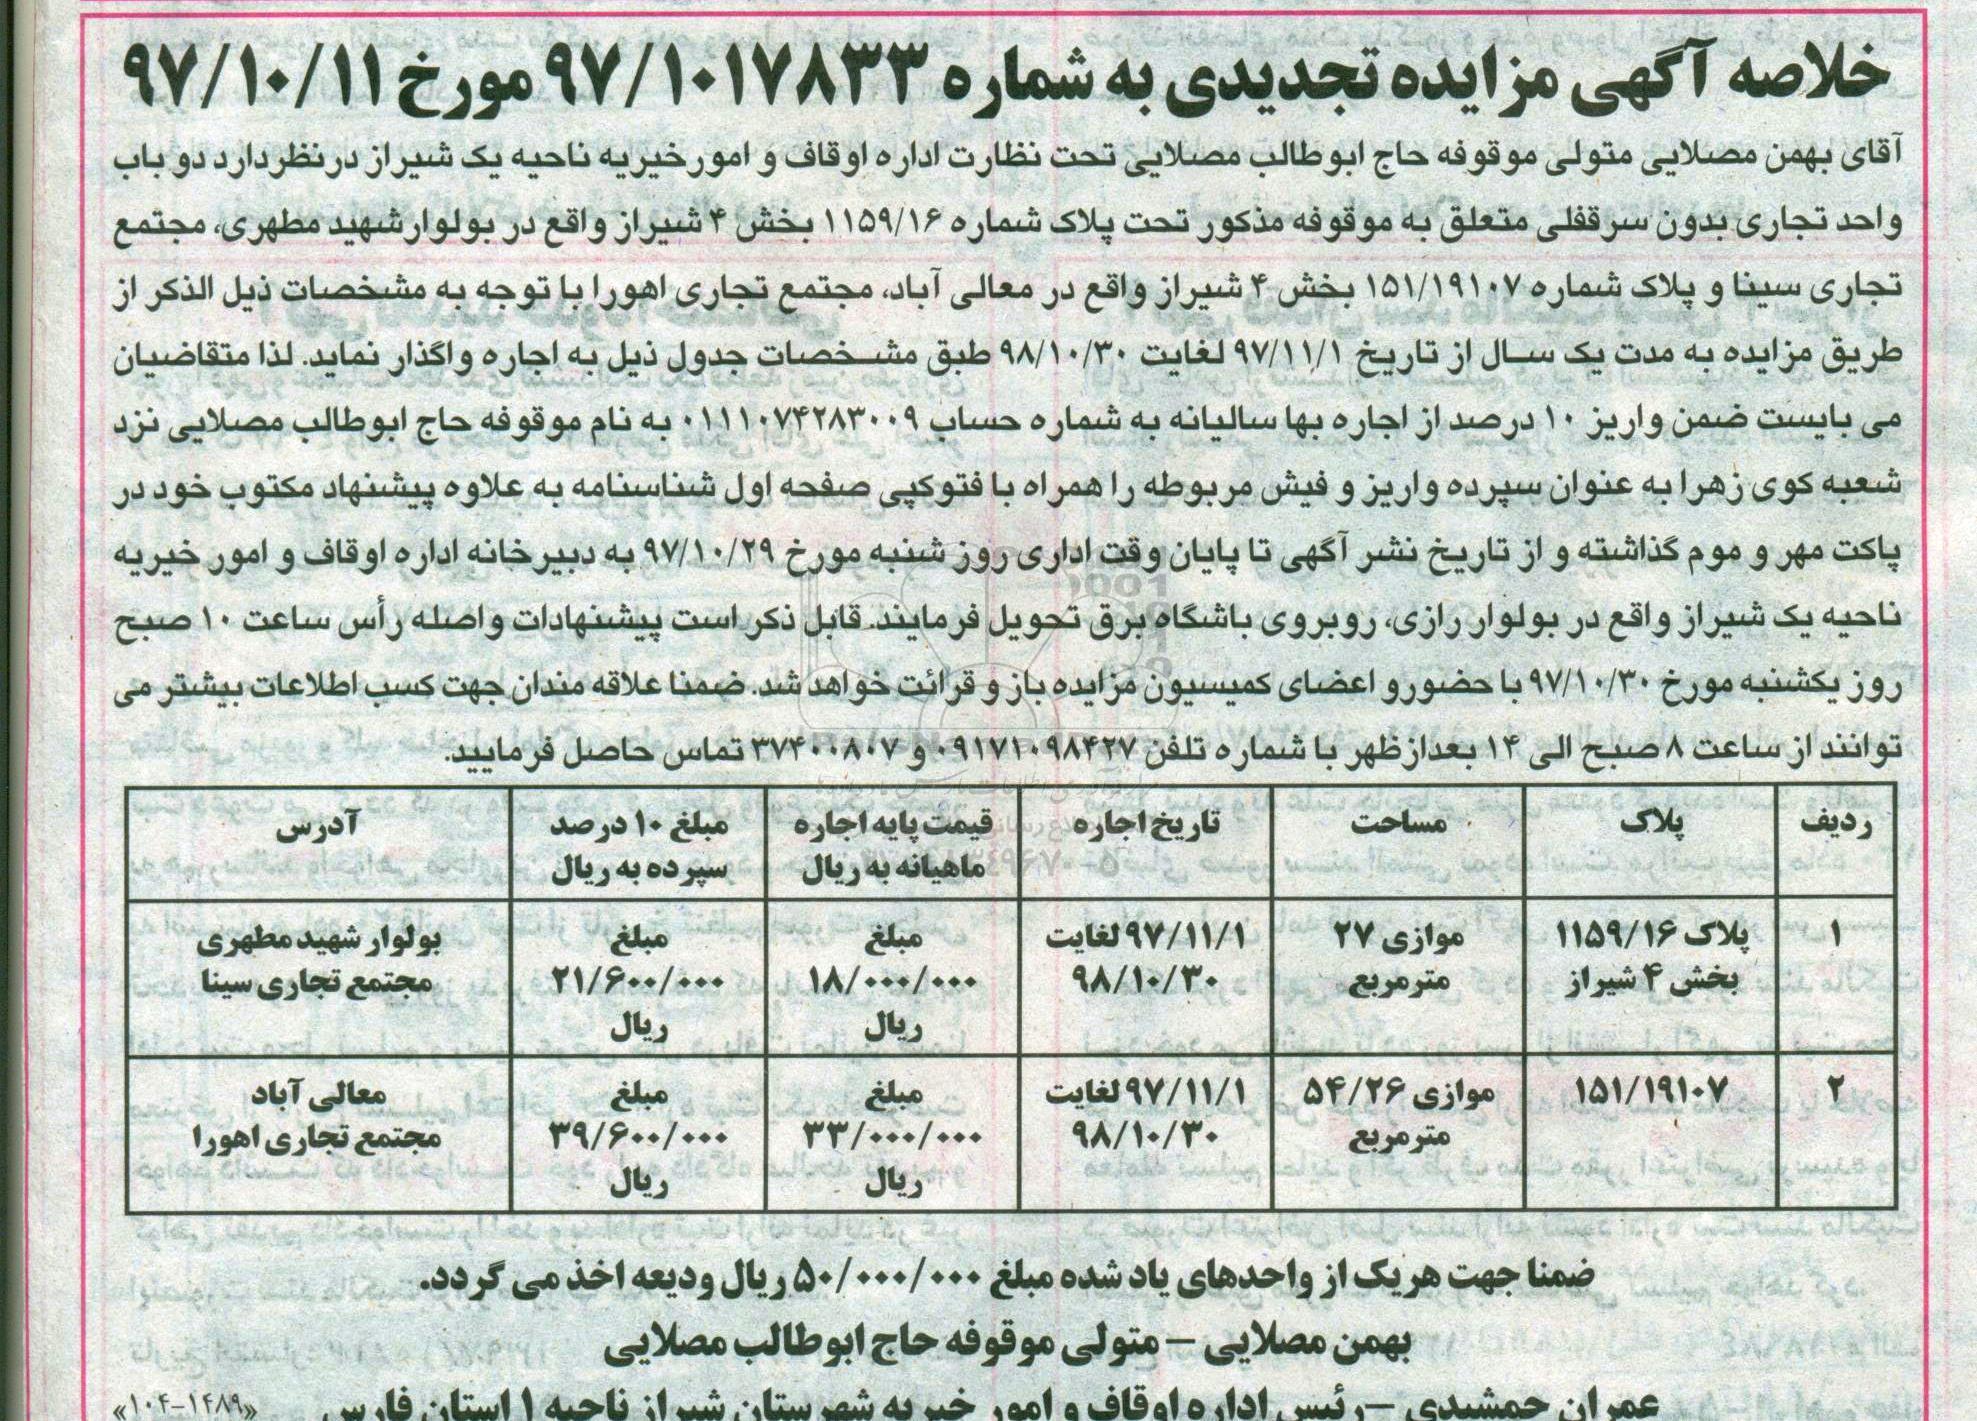 خلاصه آگهی مزایده تجدیدی به شماره ۹۷/۱۰۱۷۸۳۳ مورخ ۹۷/۱۰/۱۱
آقای بهمن مصلایی متولی موقوفه حاج ابوطالب مصلایی تحت نظارت اداره اوقاف و امورخیریه ناحیه یک شیراز درنظردارد دو باب
واحد تجاری بدون سرقفلی متعلق به موقوفه مذکور تحت پلاک شماره ۱۱۵۹/۱۶ بخش ۴ شیراز واقع در بولوارشهید مطهری، مجتمع
تجاری سینا و پلاک شماره ۱۵۱/۱۹۱۰۷ بخش ۴ شیراز واقع در معالی آباد، مجتمع تجاری اهورا با توجه به مشخصات ذیل الذکر از
طریق مزایده به مدت یک سال از تاریخ ۹۷/۱۱/۱ لغایت ۹۸/۱۰/۳۰ طبق مشخصات جدول ذیل به اجاره واگذار نماید. لذا متقاضیان
می بایست ضمن واریز ۱۰ درصد از اجاره بها سالیانه به شماره حساب ۰۱۱۱۰۷۴۲۸۳۰۰۹ به نام موقوفه حاج ابوطالب مصلایی نزد
شعبه کوی زهرا به عنوان سپرده واریز و فیش مربوطه را همراه با فتوکپی صفحه اول شناسنامه به علاوه پیشنهاد مکتوب خود در
پاکت مهر و موم گذاشته و از تاریخ نشر آگهی تا پایان وقت اداری روز شنبه مورخ ۹۷/۱۰/۲۹ به دبیرخانه اداره اوقاف و امور خیریه
ناحیه یک شیراز واقع در بولوار رازی، روبروی باشگاه برق تحویل فرمایند. قابل ذکر است پیشنهادات واصله رأس ساعت ۱۰ صبح
روز یکشنبه مورخ ۹۷/۱۰/۳۰ با حضورو اعضای کمیسیون مزایده باز و قرائت خواهد شد. ضمنا علاقه مندان جهت کسب اطلاعات بیشتر می
توانند از ساعت ۸ صبح الی ۱۴ بعدازظهر با شماره تلفن ۰۹۱۷۱۰۹۸۴۲۷ و ۳۷۴۰۰۸۰۷ تماس حاصل فرمایید.
ردیف پلاک مساحت تاریخ اجاره قیمت پایه اجاره مبلغ ۱۰ درصد آدرس
ماهیانه به ریال سپرده به ریال
۱ پلاک ۱۱۵۹/۱۶ موازی ۲۷ ۹۷/۱۱/۱ لغایت مبلغ مبلغ بولوار شهید مطهری
بخش ۴ شیراز مترمربع ۹۸/۱۰/۳۰ ۱۸/۰۰۰/۰۰۰ ۲۱/۶۰۰/۰۰۰ مجتمع تجاری سینا
ریال ریال
۲ ۱۵۱/۱۹۱۰۷ موازی ۵۴/۲۶ ۹۷/۱۱/۱ لغایت مبلغ مبلغ معالی آباد
مترمربع ۹۸/۱۰/۳۰ ۳۳/۰۰۰/۰۰۰ ۳۹/۶۰۰/۰۰۰ مجتمع تجاری اهورا
ریال ریال
ضمنا جهت هریک از واحدهای یاد شده مبلغ ۵۰/۰۰۰/۰۰۰ ریال ودیعه اخذ می گردد.
بهمن مصلایی – متولی موقوفه حاج ابوطالب مصلایی
عمران جمشیدی – رئیس اداره اوقاف و امور خیریه شهرستان شیراز ناحیه ۱ استان فارس
«۱۰۴-۱۴۸۹»